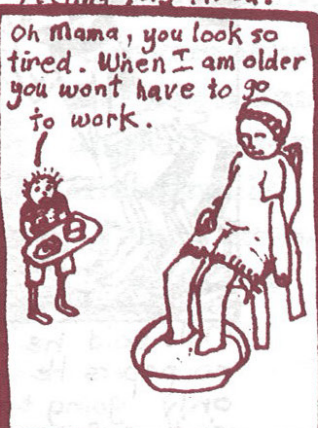 Oh Mama, you look so
tired. When I am older
you wont have to go
to work.